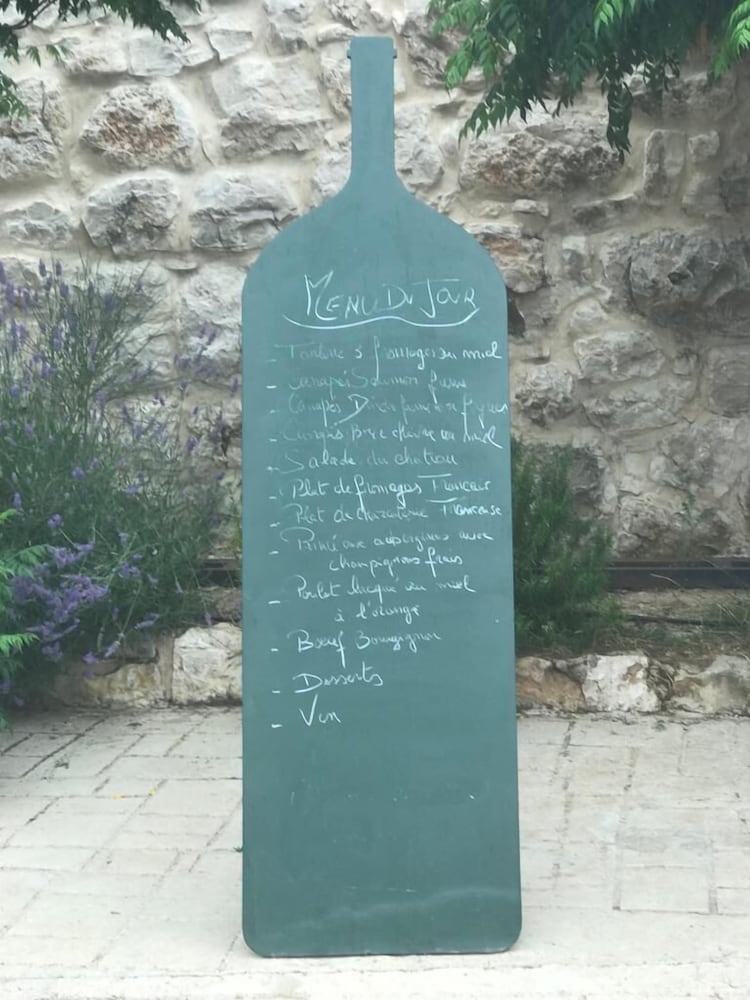 Menu Du Jour
- Tartine 3 fromages au miel
- Canapés Saumon fumé
- Canapés figues
- Canapés Brie chèvre au miel
- Salade du château
- Plat de fromages Francais
- Plat de charcuterie Francaise
- aux aubergines avec
champignons frais
- Poulet laqué au miel
à l'orange
- Boeuf Bourguignon
- Desserts
- Vin